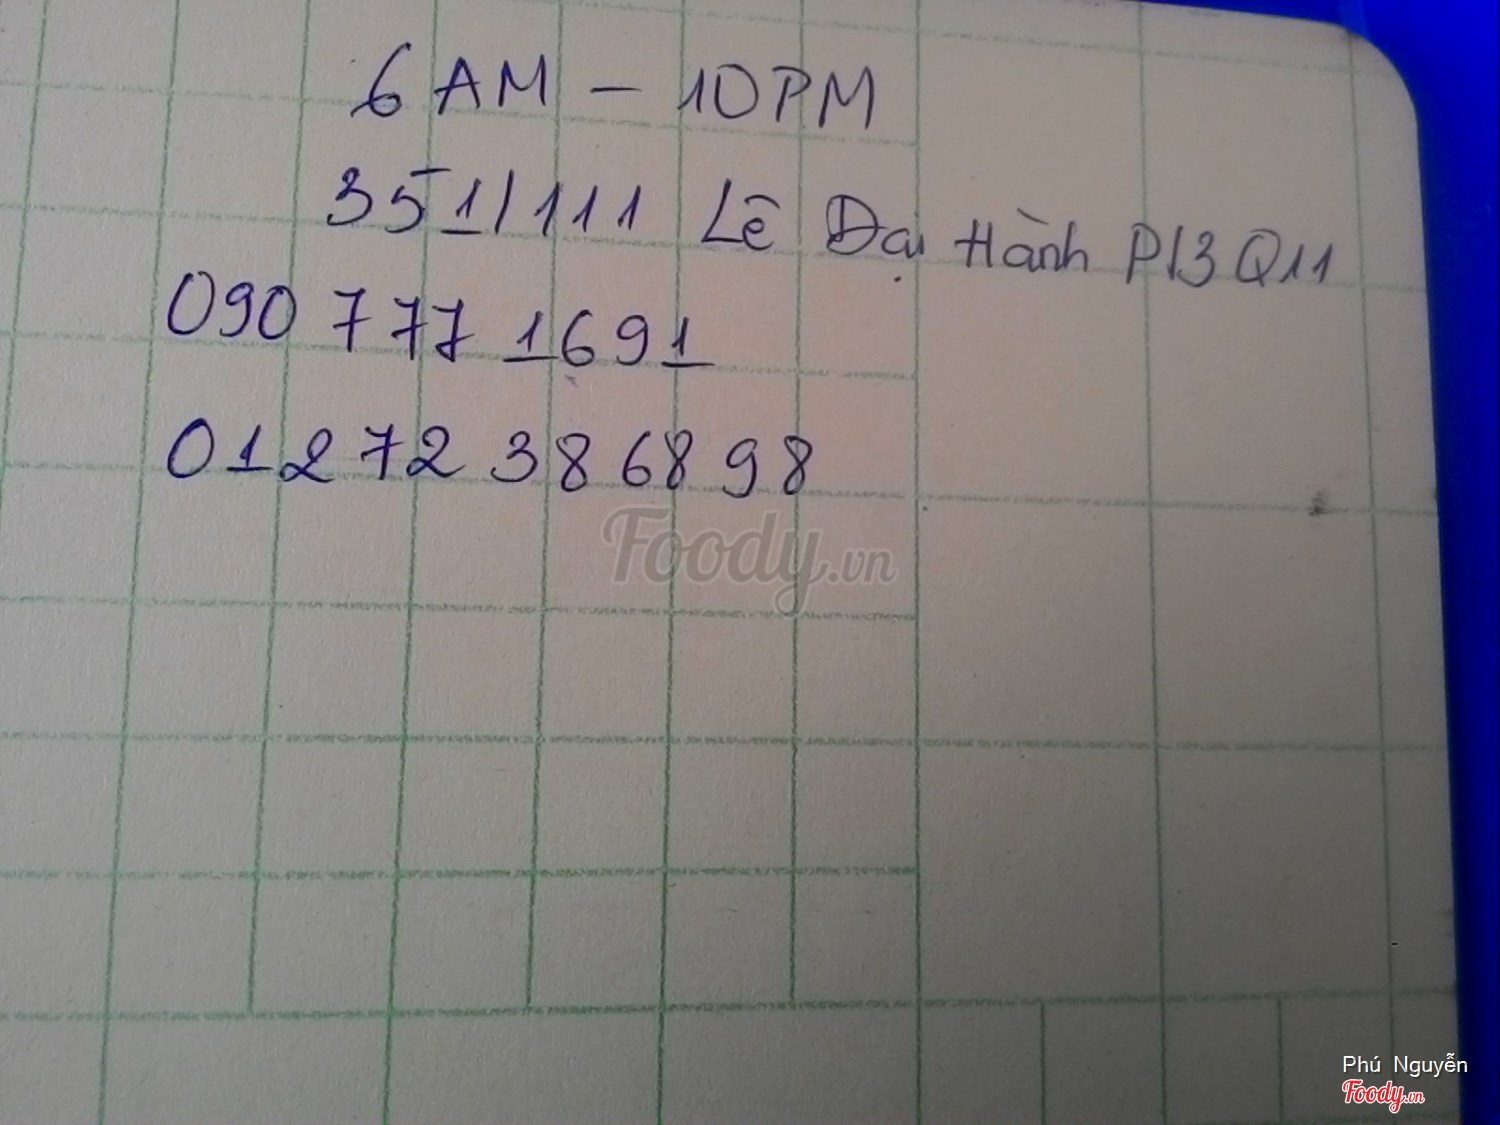 6 AM - 10PM
351/111 Lê Đại Hành P13 Q11
090 777 1691
01272 386898
Foody.vn
Phú Nguyễn
Foody.vn